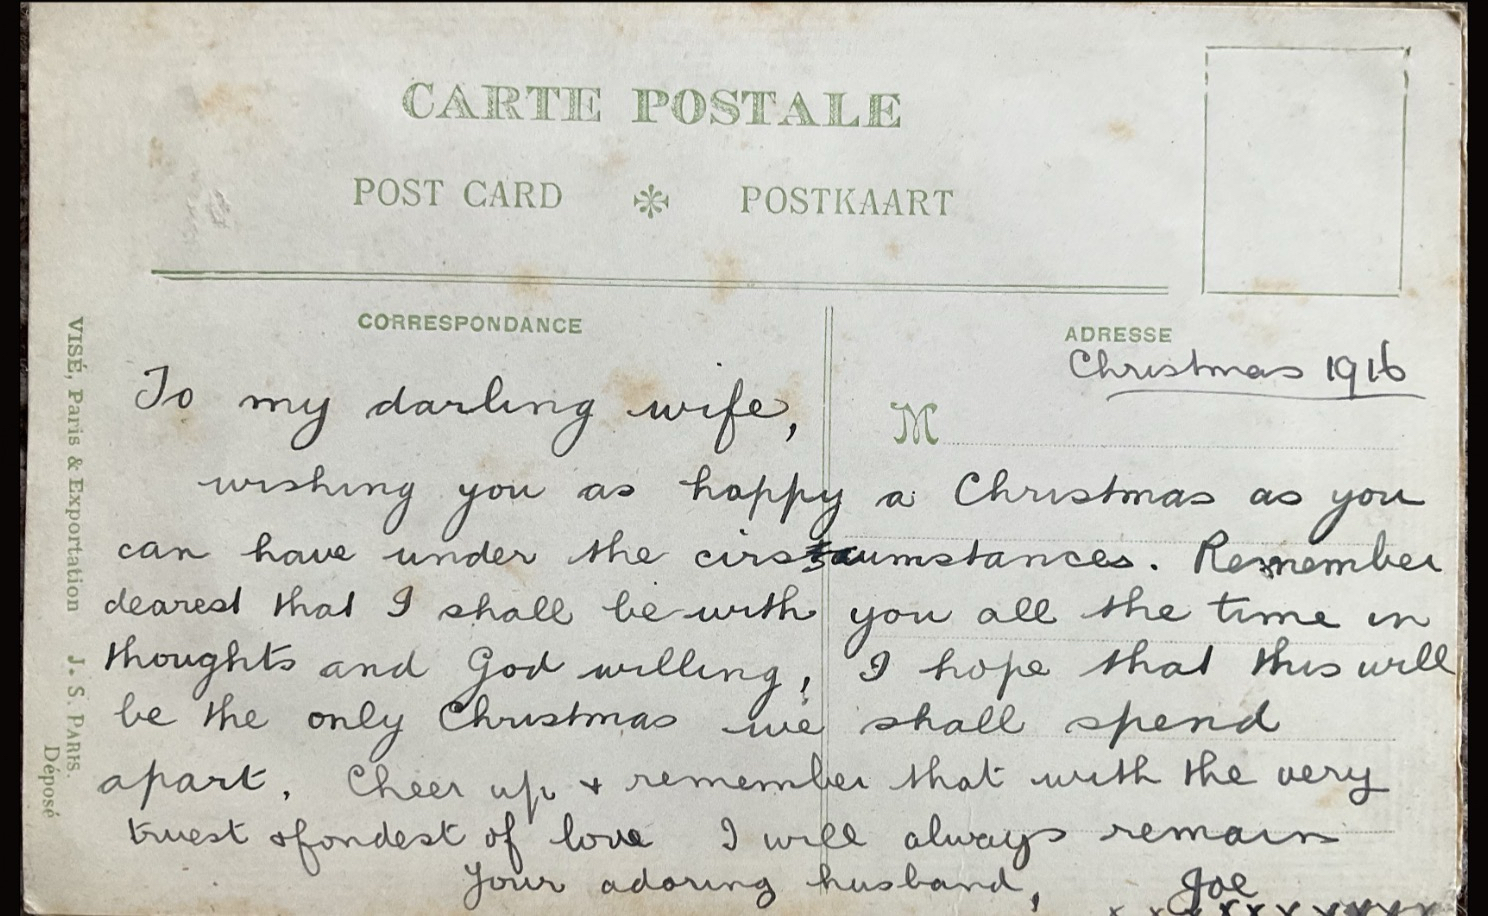 CARTE POSTALE
POST CARD POSTKAART
CORRESPONDANCE
ADRESSE
Christmas 1916
M
To my darling wife,
wishing you as happy a Christmas as you
can have under the circumstances. Remember
dearest that I shall be with you all the time in
thoughts and God willing, I hope that this will
be the only Christmas we shall spend
apart. Cheer up + remember that with the very
truest & fondest of love I will always remain
Your adoring husband, Joe
x x x x x x x x x x
VISÉ, Paris & Exportation J. S. PARIS.
Déposé